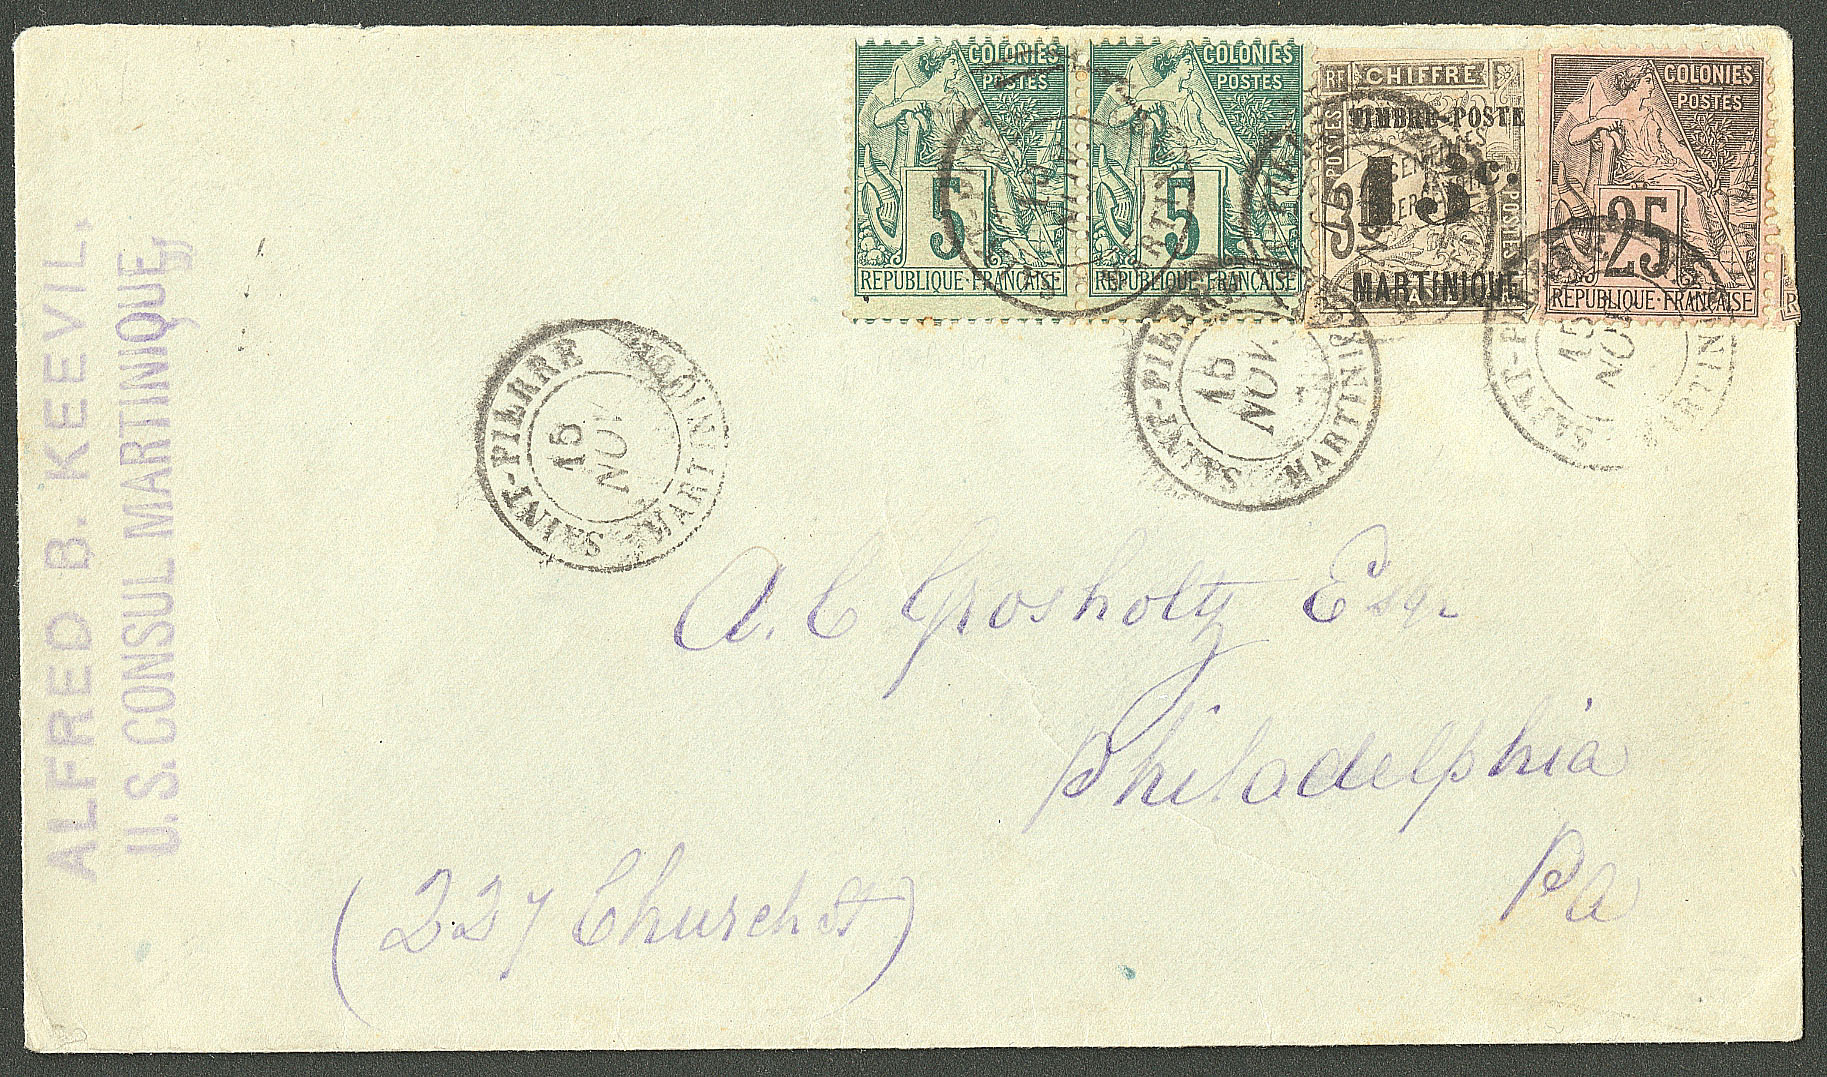 ALFRED B. KEEVIL,
U.S. CONSUL MARTINIQUE
COLONIES
POSTES
5
REPUBLIQUE·FRANÇAISE
COLONIES
POSTES
5
REPUBLIQUE·FRANÇAISE
RF CHIFFRE
TIMBRE-POSTE
15c.
POSTES
POSTES
MARTINIQUE
COLONIES
POSTES
25
REPUBLIQUE·FRANÇAISE
SAINT-PIERRE
15
NOV.
MARTINIQUE
SAINT-PIERRE
15
NOV.
MARTIN
SAINT-PI
15
NOV
MARTIN
A. C Grosholtz Esqr
Philadelphia
Pa
(227 Church St)